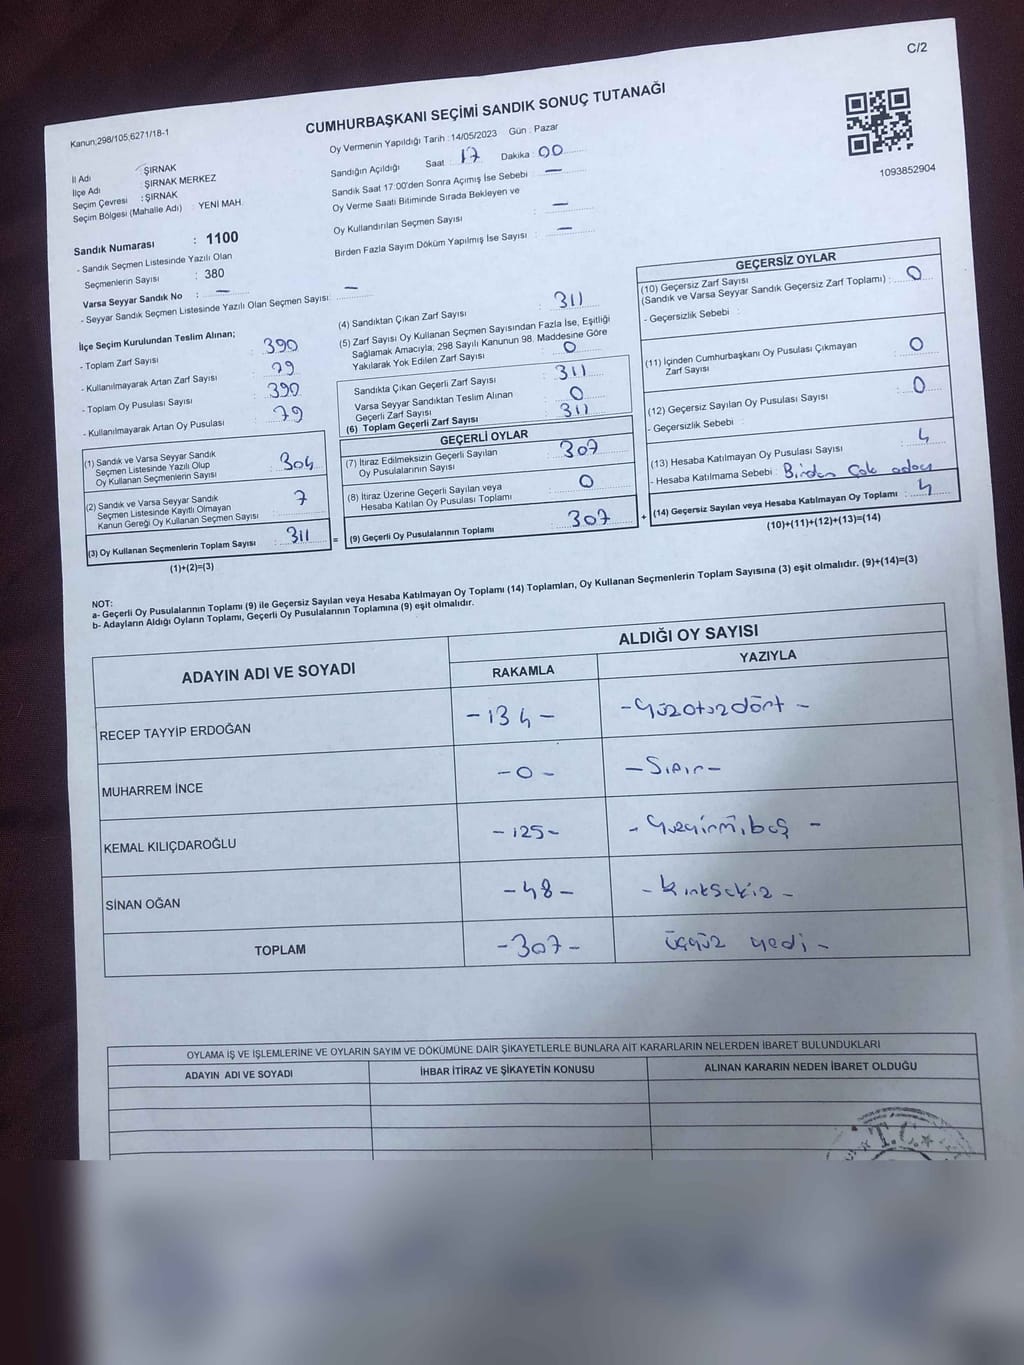 C/2
Kanun;298/105,6271/18-1
CUMHURBAŞKANI SEÇİMİ SANDIK SONUÇ TUTANAĞI
Oy Vermenin Yapıldığı Tarih : 14/05/2023 Gün : Pazar
Sandığın Açıldığı Saat 17 Dakika : 00
Sandık Saat 17:00'den Sonra Açımış İse Sebebi : —
Oy Verme Saati Bitiminde Sırada Bekleyen ve
Oy Kullandırılan Seçmen Sayısı : —
Birden Fazla Sayım Döküm Yapılmış İse Sayısı : —
1093852904
İl Adı : ŞIRNAK
İlçe Adı : ŞIRNAK MERKEZ
Seçim Çevresi : ŞIRNAK
Seçim Bölgesi (Mahalle Adı) : YENİ MAH.
Sandık Numarası : 1100
- Sandık Seçmen Listesinde Yazılı Olan
Seçmenlerin Sayısı : 380
Varsa Seyyar Sandık No : —
- Seyyar Sandık Seçmen Listesinde Yazılı Olan Seçmen Sayısı: —
İlçe Seçim Kurulundan Teslim Alınan;
- Toplam Zarf Sayısı : 390
- Kullanılmayarak Artan Zarf Sayısı : 79
- Toplam Oy Pusulası Sayısı : 390
- Kullanılmayarak Artan Oy Pusulası : 79
(1) Sandık ve Varsa Seyyar Sandık
Seçmen Listesinde Yazılı Olup
Oy Kullanan Seçmenlerin Sayısı : 304
(2) Sandık ve Varsa Seyyar Sandık
Seçmen Listesinde Kayıtlı Olmayan
Kanun Gereği Oy Kullanan Seçmen Sayısı : 7
(3) Oy Kullanan Seçmenlerin Toplam Sayısı : 311
(1)+(2)=(3)
(4) Sandıktan Çıkan Zarf Sayısı : 311
(5) Zarf Sayısı Oy Kullanan Seçmen Sayısından Fazla İse, Eşitliği
Sağlamak Amacıyla, 298 Sayılı Kanunun 98. Maddesine Göre
Yakılarak Yok Edilen Zarf Sayısı : 0
Sandıkta Çıkan Geçerli Zarf Sayısı : 311
Varsa Seyyar Sandıktan Teslim Alınan
Geçerli Zarf Sayısı : 0
(6) Toplam Geçerli Zarf Sayısı : 311
GEÇERLİ OYLAR
(7) İtiraz Edilmeksizin Geçerli Sayılan
Oy Pusulalarının Sayısı : 307
(8) İtiraz Üzerine Geçerli Sayılan veya
Hesaba Katılan Oy Pusulası Toplamı : 0
= (9) Geçerli Oy Pusulalarının Toplamı : 307 +
GEÇERSİZ OYLAR
(10) Geçersiz Zarf Sayısı
(Sandık ve Varsa Seyyar Sandık Geçersiz Zarf Toplamı) : 0
- Geçersizlik Sebebi :
(11) İçinden Cumhurbaşkanı Oy Pusulası Çıkmayan
Zarf Sayısı : 0
(12) Geçersiz Sayılan Oy Pusulası Sayısı : 0
- Geçersizlik Sebebi :
(13) Hesaba Katılmayan Oy Pusulası Sayısı : 4
- Hesaba Katılmama Sebebi : Birden Çok aday
(14) Geçersiz Sayılan veya Hesaba Katılmayan Oy Toplamı : 4
(10)+(11)+(12)+(13)=(14)
NOT:
a- Geçerli Oy Pusulalarının Toplamı (9) ile Geçersiz Sayılan veya Hesaba Katılmayan Oy Toplamı (14) Toplamları, Oy Kullanan Seçmenlerin Toplam Sayısına (3) eşit olmalıdır. (9)+(14)=(3)
b- Adayların Aldığı Oyların Toplamı, Geçerli Oy Pusulalarının Toplamına (9) eşit olmalıdır.
ADAYIN ADI VE SOYADI
ALDIĞI OY SAYISI
RAKAMLA YAZIYLA
RECEP TAYYİP ERDOĞAN -134- -yüzotuzdört-
MUHARREM İNCE -0- -Sıfır-
KEMAL KILIÇDAROĞLU -125- -yuzyirmibeş-
SİNAN OĞAN -48- -kırksekiz-
TOPLAM -307- üçyüz yedi-
OYLAMA İŞ VE İŞLEMLERİNE VE OYLARIN SAYIM VE DÖKÜMÜNE DAİR ŞİKAYETLERLE BUNLARA AİT KARARLARIN NELERDEN İBARET BULUNDUKLARI
ADAYIN ADI VE SOYADI İHBAR İTİRAZ VE ŞİKAYETİN KONUSU ALINAN KARARIN NEDEN İBARET OLDUĞU
T.C.